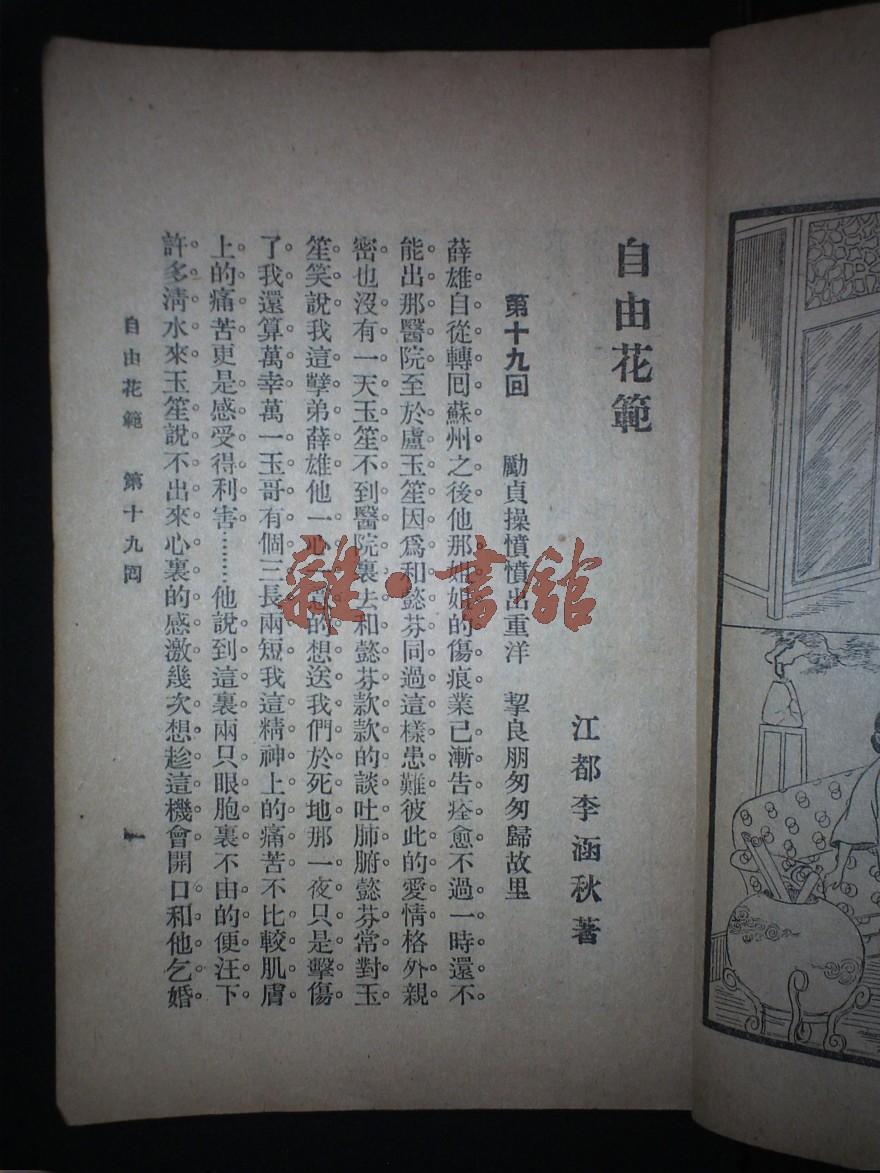 自由花範
江都李涵秋著
第十九回　勵貞操憤憤出重洋　挈良朋匆匆歸故里
薛雄。自從轉囘蘇州之後。他那姐姐的傷痕。業已漸告痊愈。不過一時還不
能出那醫院。至於盧玉笙因爲和懿芬同過這樣患難。彼此的愛情。格外親
密。也沒有一天玉笙不到醫院裏去和懿芬款款的談吐肺腑。懿芬常對玉
笙笑說。我這孽弟薛雄。他一心一意的想送我們於死地。那一夜只是擊傷
了我。還算萬幸。萬一玉哥有個三長兩短。我這精神上的痛苦。不比較肌膚
上的痛苦。更是感受得利害………他說到這裏。兩只眼胞裏。不由的便汪下
許多淸水來。玉笙說不出來心裏的感激。幾次想趁這機會開口和他乞婚
自由花範　第十九囘
一
雜·書館